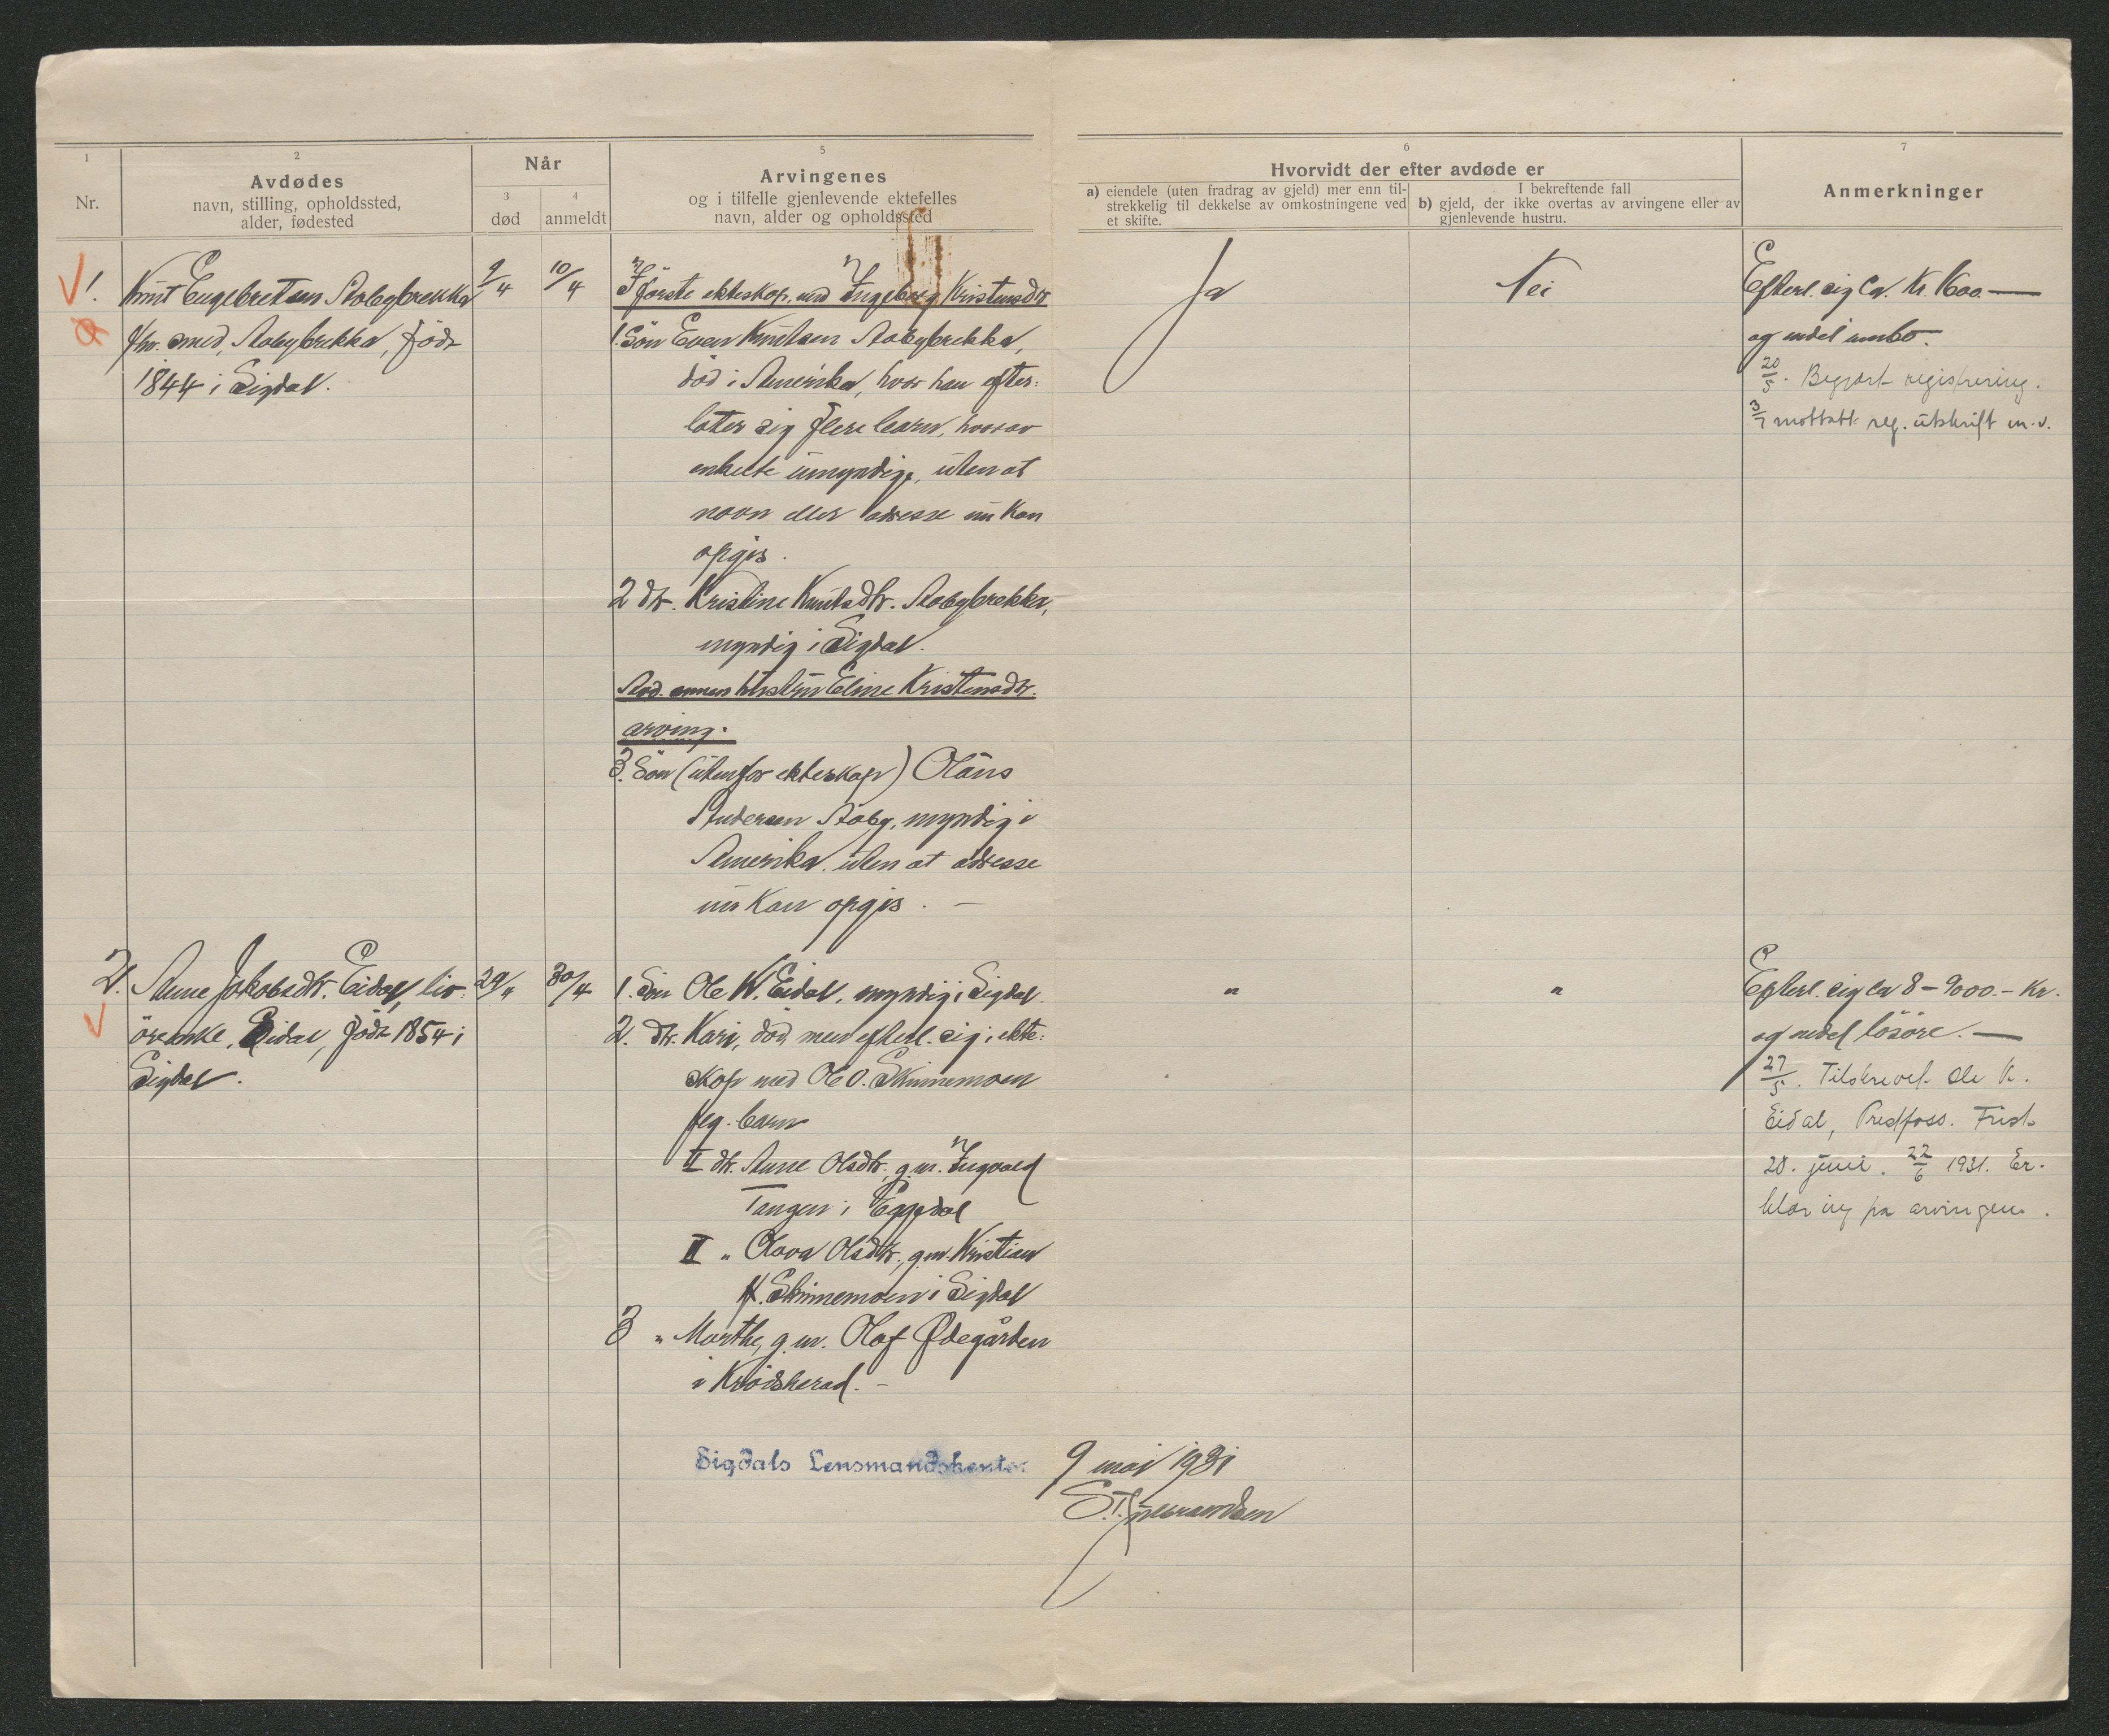 1
Nr.
2
Avdødes
navn, stilling, opholdssted,
alder, fødested
Når
3
død
4
anmeldt
5
Arvingenes
og i tilfelle gjenlevende ektefelles
navn, alder og opholdssted
6
Hvorvidt der efter avdøde er
a) eiendele (uten fradrag av gjeld) mer enn til-
strekkelig til dekkelse av omkostningene ved
et skifte.
I bekreftende fall
b) gjeld, der ikke overtas av arvingene eller av
gjenlevende hustru.
7
Anmerkninger
1.
Knut Engebretsen Aabybrekka
fhv. smed, Aabybrekka, född
1844 i Sigdal.
9/4
10/4
I förste ekteskap med Ingeborg Kristensdtr
1. Sön Even Knutsen Aabybrekka,
död i Amerika, hvor han efter-
later sig flere barn, hvorav
enkelte umyndige, uten at
navn eller adresse nu kan
opgis.
2 dtr. Kristine Knutsdtr. Aabybrekka,
myndig i Sigdal.
Avd. annen hustru Eline Kristensdtr.
arving.
3. Sön (utenfor ekteskap) Olaus
Andersen Aaby, myndig i
Amerika uten at adresse
nu kan opgis. —
Ja
Nei
Efterl. sig ca. Kr. 1600.—
og endel innbo.
20/5. Begjært registrering.
3/7 mottatt reg. utskrift m.v.
2.
Anne Jakobsdtr. Eidal, liv-
öreenke, Eidal, född 1854 i
Sigdal.
29/"
30/4
1. Sön Ole K. Eidal, myndig i Sigdal.
2. dtr. Kari, död men efterl. sig i ekte-
skap med Ole O. Skinnemoen
flg. barn
I dtr. Anne Olsdtr. g.m. Ingvald
Tangen i Eggedal
II " Olava Olsdtr., g.m. Kristian
K. Skinnemoen i Sigdal
3 " Marthe, g.m. Olaf Ødegården
i Krödsherad. —
"
"
Efterl. sig ca 8-9000.- Kr.
og endel lösöre. —
27/5. Tilskrevet Ole K.
Eidal, Predfoss. Frist
20. juni. 22/6 1931. Er-
klæring fra arvingene.
Sigdals Lensmandskontor
9 mai 1931